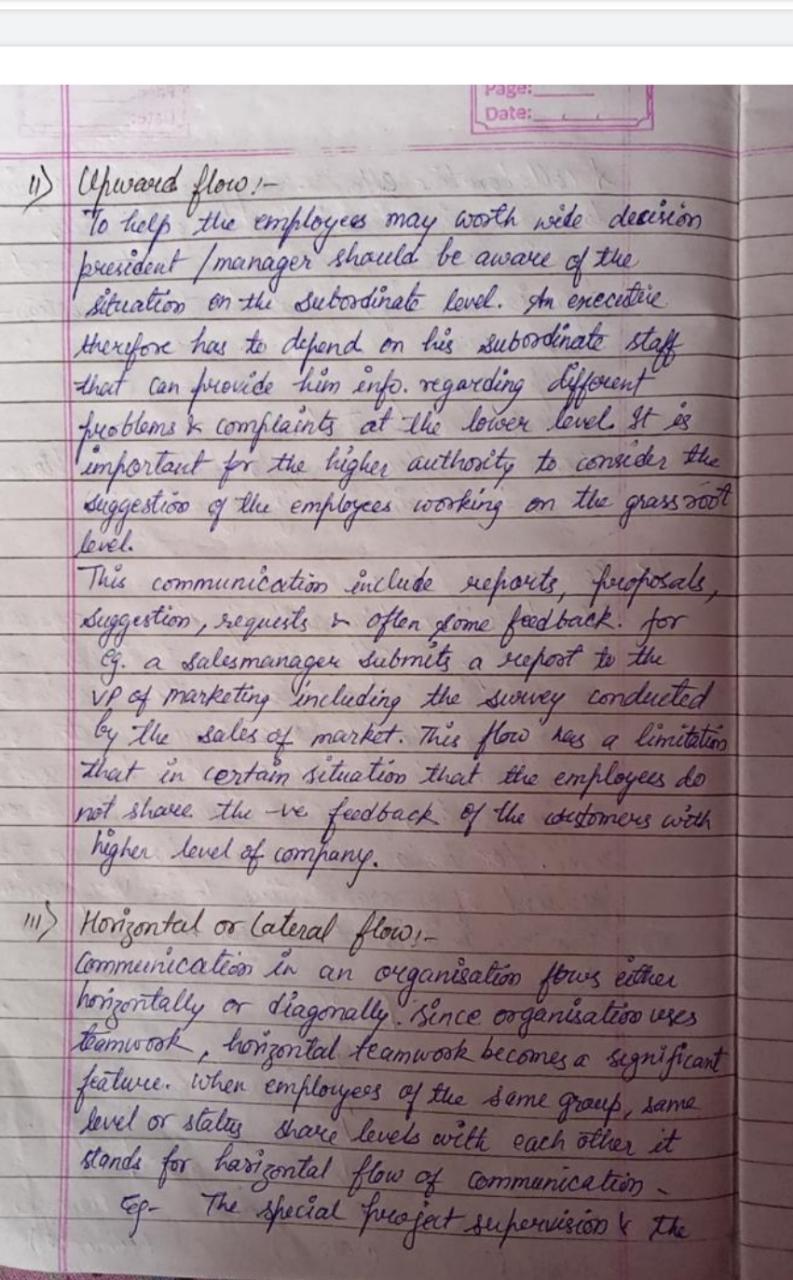 Page:
Date:
II) Upward flow:-
To help the employees may worth wide decision
president / manager should be aware of the
situation on the subordinate level. An executive
therefore has to depend on his subordinate staff
that can provide him info. regarding different
problems & complaints at the lower level. It is
important for the higher authority to consider the
suggestion of the employees working on the grassroot
level.
This communication include reports, proposals,
suggestion, requests & often some feedback. for
eg. a salesmanager submits a report to the
VP of marketing including the survey conducted
by the sales of market. This flow has a limitation
that in certain situation that the employees do
not share the -ve feedback of the customers with
higher level of company.
III) Horizontal or Lateral flow:-
Communication in an organisation flows either
horizontally or diagonally. Since organisation uses
teamwork, horizontal teamwork becomes a significant
feature. When employees of the same group, same
level or status share levels with each other it
stands for harizontal flow of communication.
Eg- The special project supervision & the